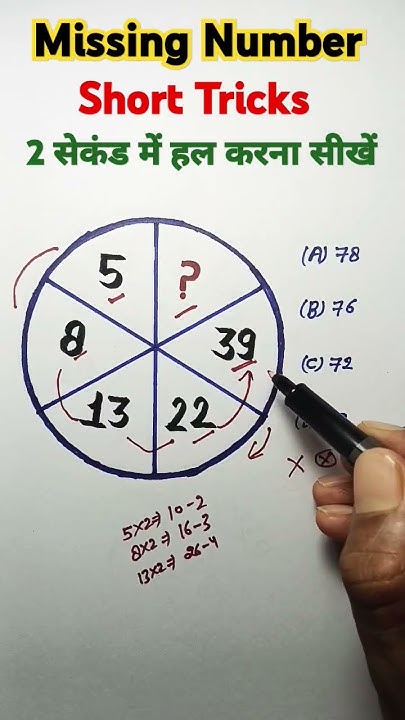 Missing Number
Short Tricks
2 सेकंड में हल करना सीखें
5 ?
(A) 78
8 39
(B) 76
13 22
(C) 72
5×2⇒ 10-2
8×2⇒ 16-3
13×2⇒ 26-4